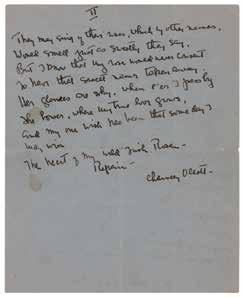 II
They may sing of their roses, which by other names,
Would smell just as sweetly, they say,
But I know that my rose would never consent
To have that sweet name taken away.
Her glances are shy, when e'er I pass by
The bower, where my true love grows,
And my one wish has been that some day I
may win
The heart of my wild Irish Rose.
Refrain-
Chauncey Olcott-